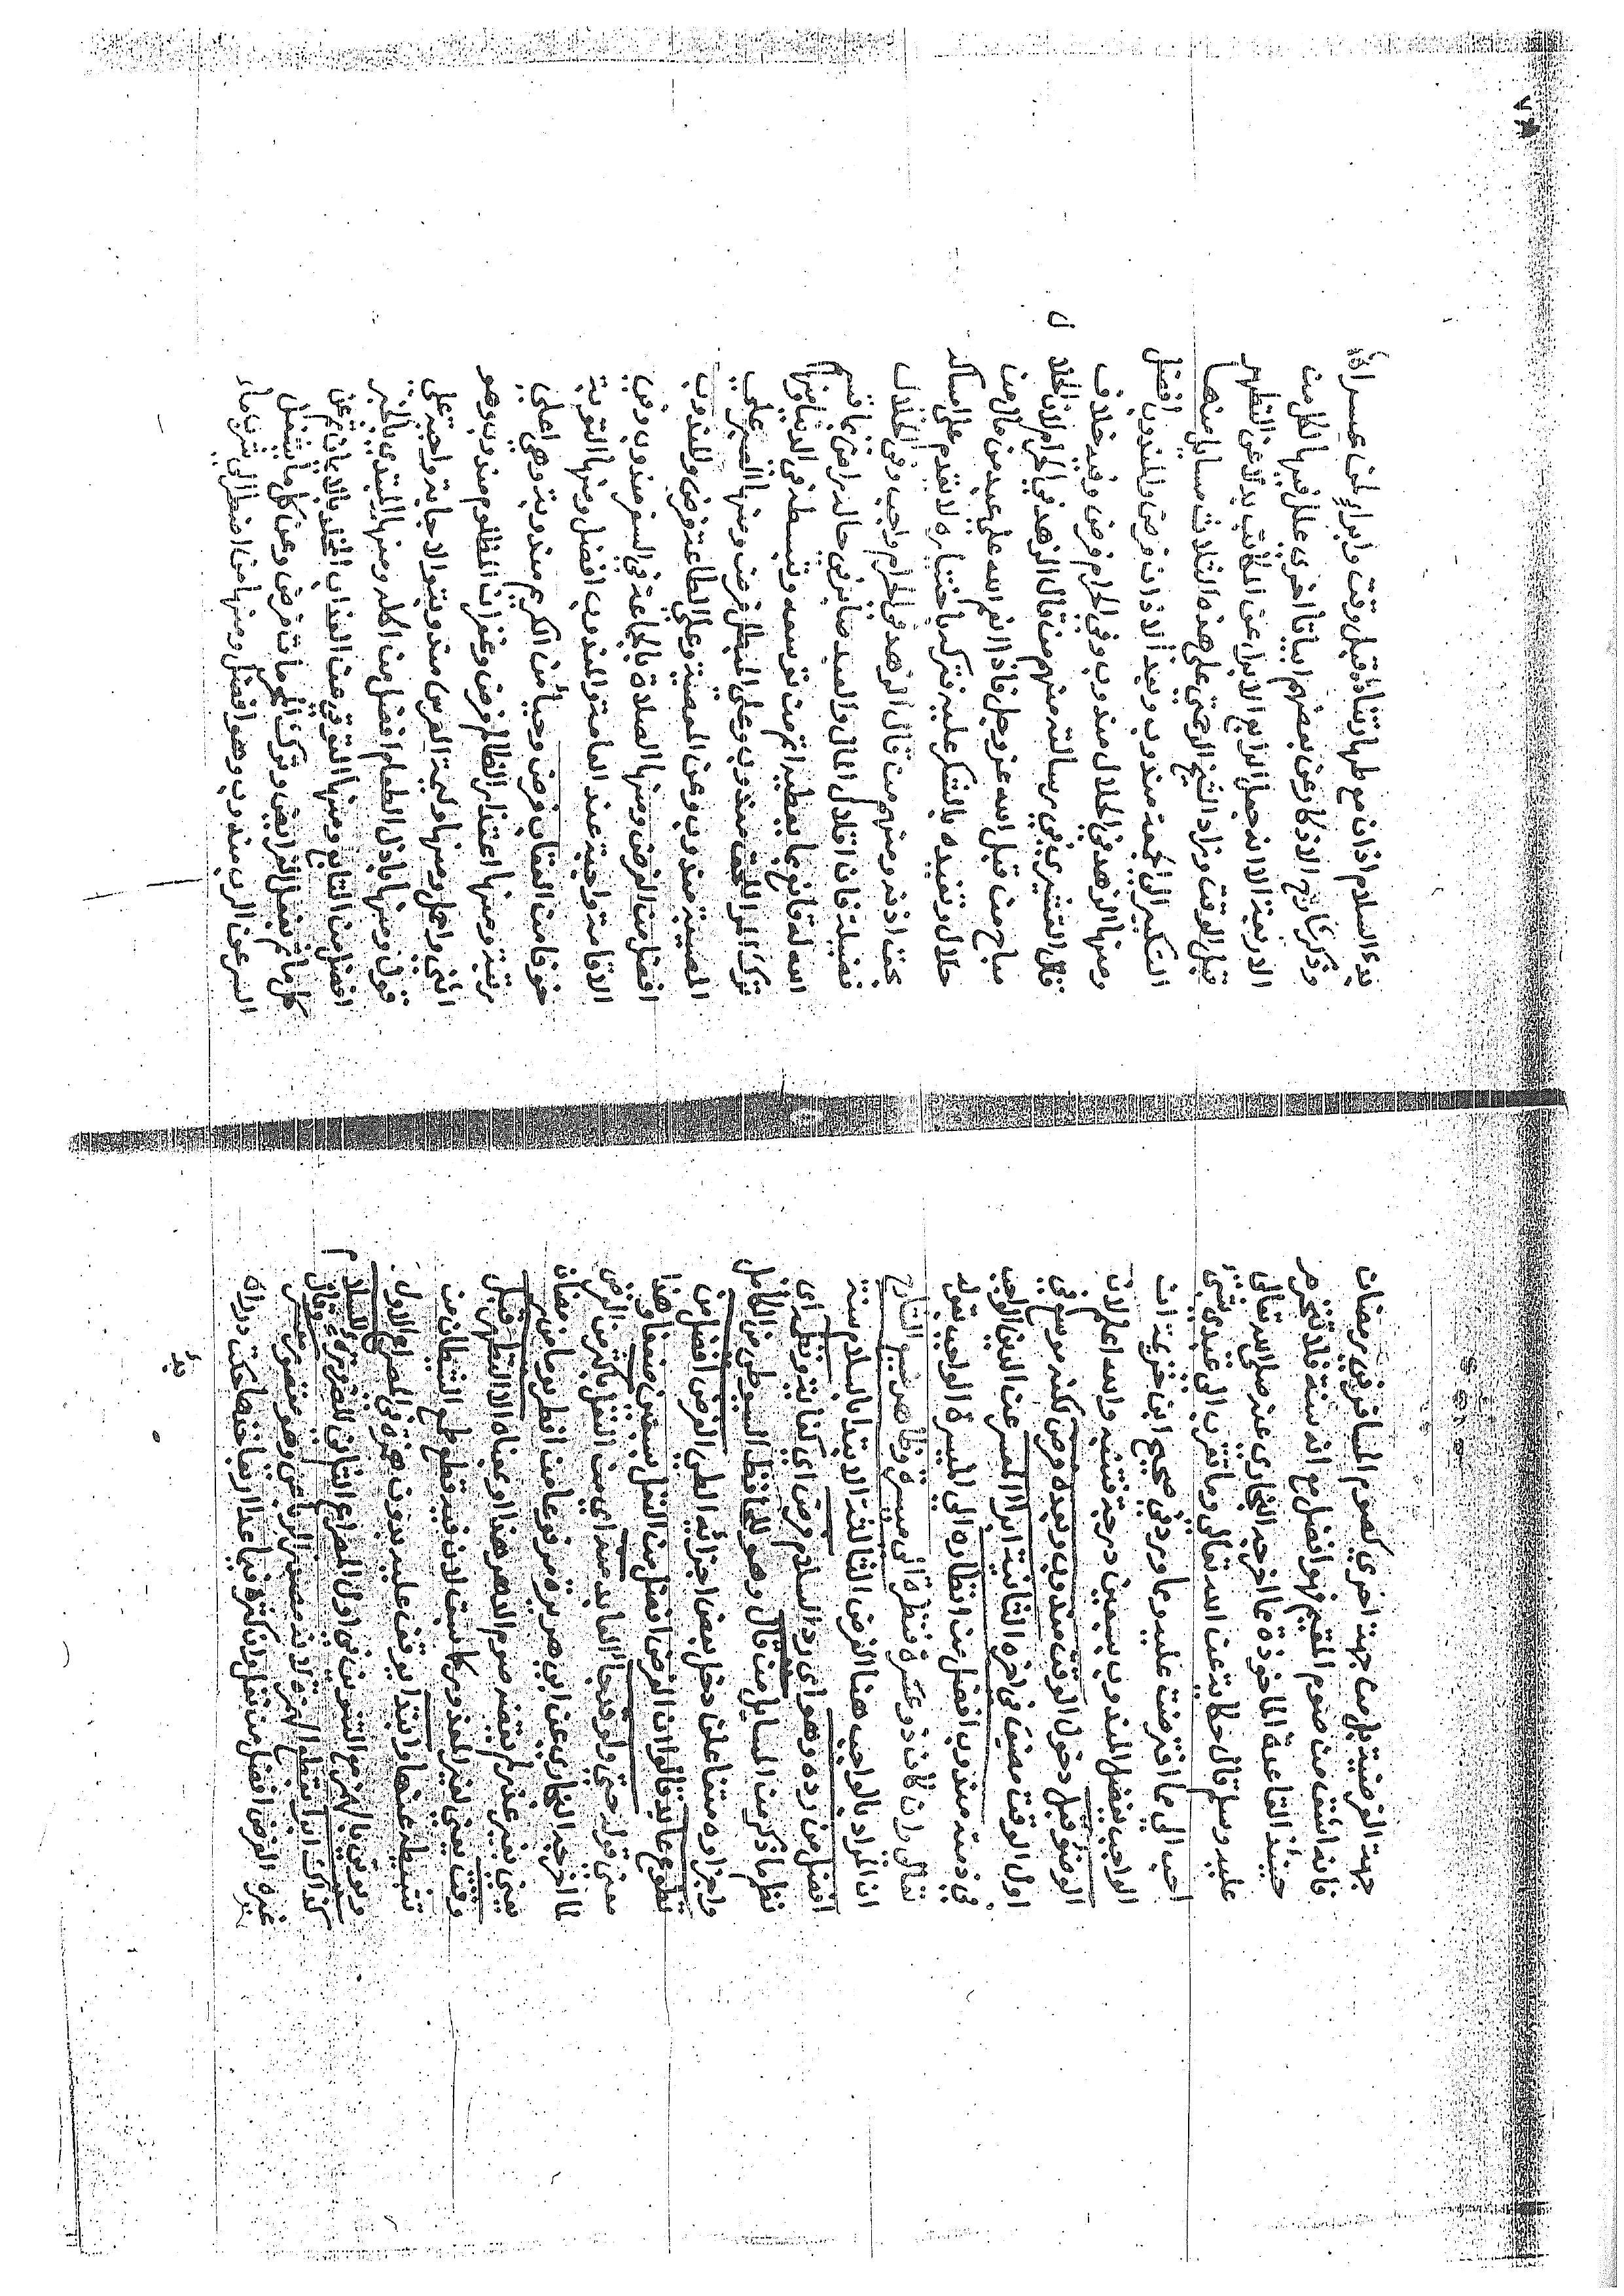 جهة الفرضية بل من جهة اخرى كصوم المسافر في رمضان
فانه اشق من صوم المقيم فهو افضل مع انه سنة فلا تنخرم
حينئذ القاعدة الماخوذة مما اخرجه البخارى عنه صلى الله تعالى
عليه وسلم قال حكاية عن الله تعالى وما تقرب الى عبدى بشئ
احب الى مما افترضت عليه ومما ورد في صحيح ابن خزيمة ان
الواجب يفضل المندوب بسبعين درجة فتنبه والله اعلم لان
الوضوء قبل دخول الوقت مندوب وبعده فرض لكنه موسع في
اول الوقت مضيق في اخره الثانية ابراء المعسر عن الدين الواجب
في ذمته مندوب افضل من انظاره الى الميسرة الواجب بقوله
تعالى وان كان ذو عسرة فنظرة الى ميسرة وظاهر تفسير الشارح
ان المراد بالواجب هنا الفرض الثالثة الابتداء بالسلام سنة
افضل من رده وهو اي رد السلام فرض اي كفاية ونظم اى
نظم ما ذكر من المسايل من قال وهو للحافظ السيوطى من الكامل
واجزاؤه متفاعلن دخل بعض اجزائه الطي الفرض افضل من
تطوع عابد قالوا ان الفرض افضل من النفل بسبعين ضعفا وهنا
معنى قوله حتى ولو قد جا العابد منه اي من النفل باكثر من الفرض
لما اخرجه البخارى عن ابي هريرة مرفوعا من افطر يوما من رمضان
يعني بغير عذر لم يقضه صوم الدهر هنا معناه الا التطهر قبل
وقت يعني لغير المعذور كما سبق لان فيه قطع طمع الشيطان من
تثبيطه عنها وابتداء يوقف عليه بدون همزة في المصراع الاول
بالجزم مع التنوين في اول المصراع الثاني للضرورة للسلام
كذاك ابرا بقطع الهمزة لانه مصدر الرباعي وهو مقصور معسر وقال
غيره الفرض افضل من نفل وان كثرا فيما عدا اربعا خذها حكت دررا
بدئ
بدئ السلام اذان مع طهارتنا قبل وقت وابراء لمن عسرا
وذكر شارح الاذكار عن بعضهم ابياتا اخرى علل فيها لكل من
الاربعة الا انه جعل الرابع الابراء عن بدلا عن التطهر
قبل الوقت وزاد الشيخ الرحمتي على هذه الثلاث مسايل منها
التبكير الى الجمعة مندوب وبعد الاذان فرض والمندوب افضل
ومنها الزهد في الحلال مندوب وفي الحرام فرض وفيه خلاف
قال القشيري في رسالته منهم من قال الزهد في الحرام لان الحلال
مباح من قبل الله عز وجل فاذا انعم الله على عبد من مال من
حلال وتعبده بالشكر عليه فتركه باختياره لا يقدم على امساكه
بحق اذنه ومنهم من قال الزهد في الحرام واجب وفي الحلال
فضيلة فان اقلال المال والعبد صابر في حاله راض بما قسم
الله له قانع بما يعطيه اتم من توسعه وتبسطه في الدنيا ومنها
ترك المحق مندوب وعلى المبطل فرض ومنها الصبر على
المصيبة مندوب وعن المعصية وعلى الطاعة فرض والمندوب
افضل من الفرض ومنها الصلاة بالجماعة في السفر مندوب وفي
الاقامة واجبة عند العامة والمندوب افضل ومنها التوبة
خوفا من العقاب فرض وحياء من الكريم مندوبة وهي اعلى
رتبة ومنها اعتذار الظالم فرض وغفران المظلوم مندوب وهو
واجل ومنها وليمة العرس مندوبة والاجابة واجبة على
قول ومنها باذل الطعام افضل من اكله ومنها المبتدى بالخير
افضل من التابع ومنها التورع عن العذاب المخلد بالايمان عن
كل ما ثم بفعل الفرائض وترك المحرمات فرض وعن كل ما يشغل
السر عن الرب مندوب وهو افضل ومنها من اضطر الى شربة ماء